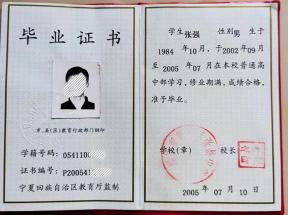 毕业证书
市、县(区)教育行政部门钢印
学籍号码:05411000
证书编号:P2005411
宁夏回族自治区教育厅监制
学生张强 性别男 生于
1984 年10月,于2002年09月
至 2005 年 07 月在本校普通高
中部学习,修业期满,成绩合格,
准予毕业。
学校(章) 校长
2005 年 07 月 10 日